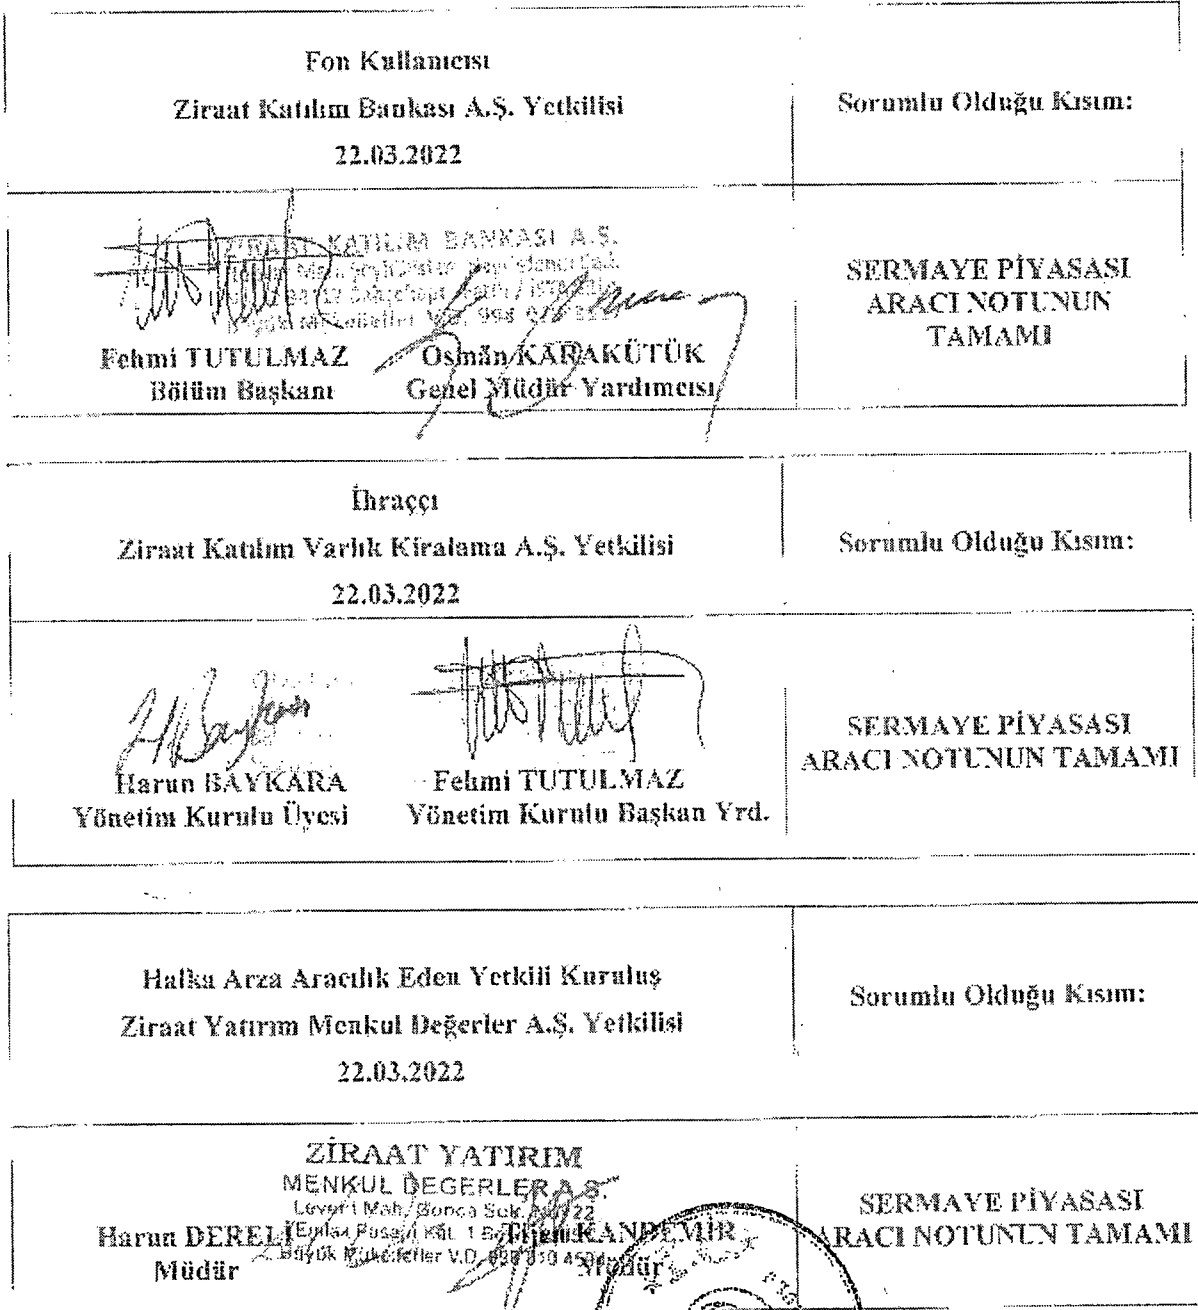 Fon Kullanıcısı
Ziraat Katılım Bankası A.Ş. Yetkilisi
22.03.2022
Sorumlu Olduğu Kısım:
ZİRAAT KATILIM BANKASI A.Ş.
Fehmi TUTULMAZ
Bölüm Başkanı
Osman KARAKÜTÜK
Genel Müdür Yardımcısı
SERMAYE PİYASASI
ARACI NOTUNUN
TAMAMI
İhraççı
Ziraat Katılım Varlık Kiralama A.Ş. Yetkilisi
22.03.2022
Sorumlu Olduğu Kısım:
Harun BAYKARA
Yönetim Kurulu Üyesi
Fehmi TUTULMAZ
Yönetim Kurulu Başkan Yrd.
SERMAYE PİYASASI
ARACI NOTUNUN TAMAMI
Halka Arza Aracılık Eden Yetkili Kuruluş
Ziraat Yatırım Menkul Değerler A.Ş. Yetkilisi
22.03.2022
Sorumlu Olduğu Kısım:
ZİRAAT YATIRIM
MENKUL DEĞERLER A.Ş.
Levent Mah. Gonca Sok.
Büyük Mükellefler V.D.
Harun DERELİ
Müdür
KANDEMİR
Müdür
SERMAYE PİYASASI
ARACI NOTUNUN TAMAMI